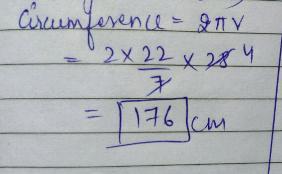 Circumference = 2πr
= 2 × 22/7 × 28 4
= 176 cm